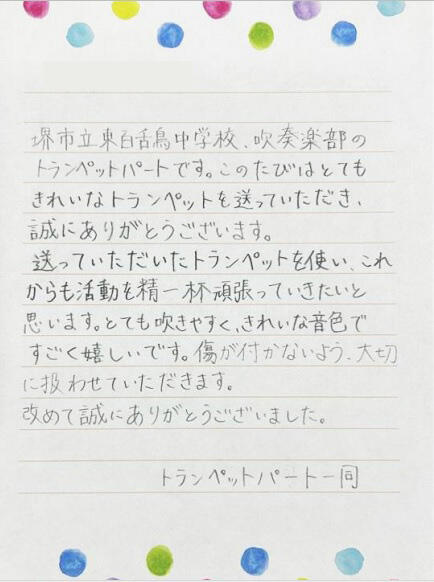 堺市立東百舌鳥中学校、吹奏楽部の
トランペットパートです。このたびはとても
きれいなトランペットを送っていただき、
誠にありがとうございます。
送っていただいたトランペットを使い、これ
からも活動を精一杯頑張っていきたいと
思います。とても吹きやすく、きれいな音色で
すごく嬉しいです。傷が付かないよう、大切
に扱わせていただきます。
改めて誠にありがとうございました。
トランペットパート一同